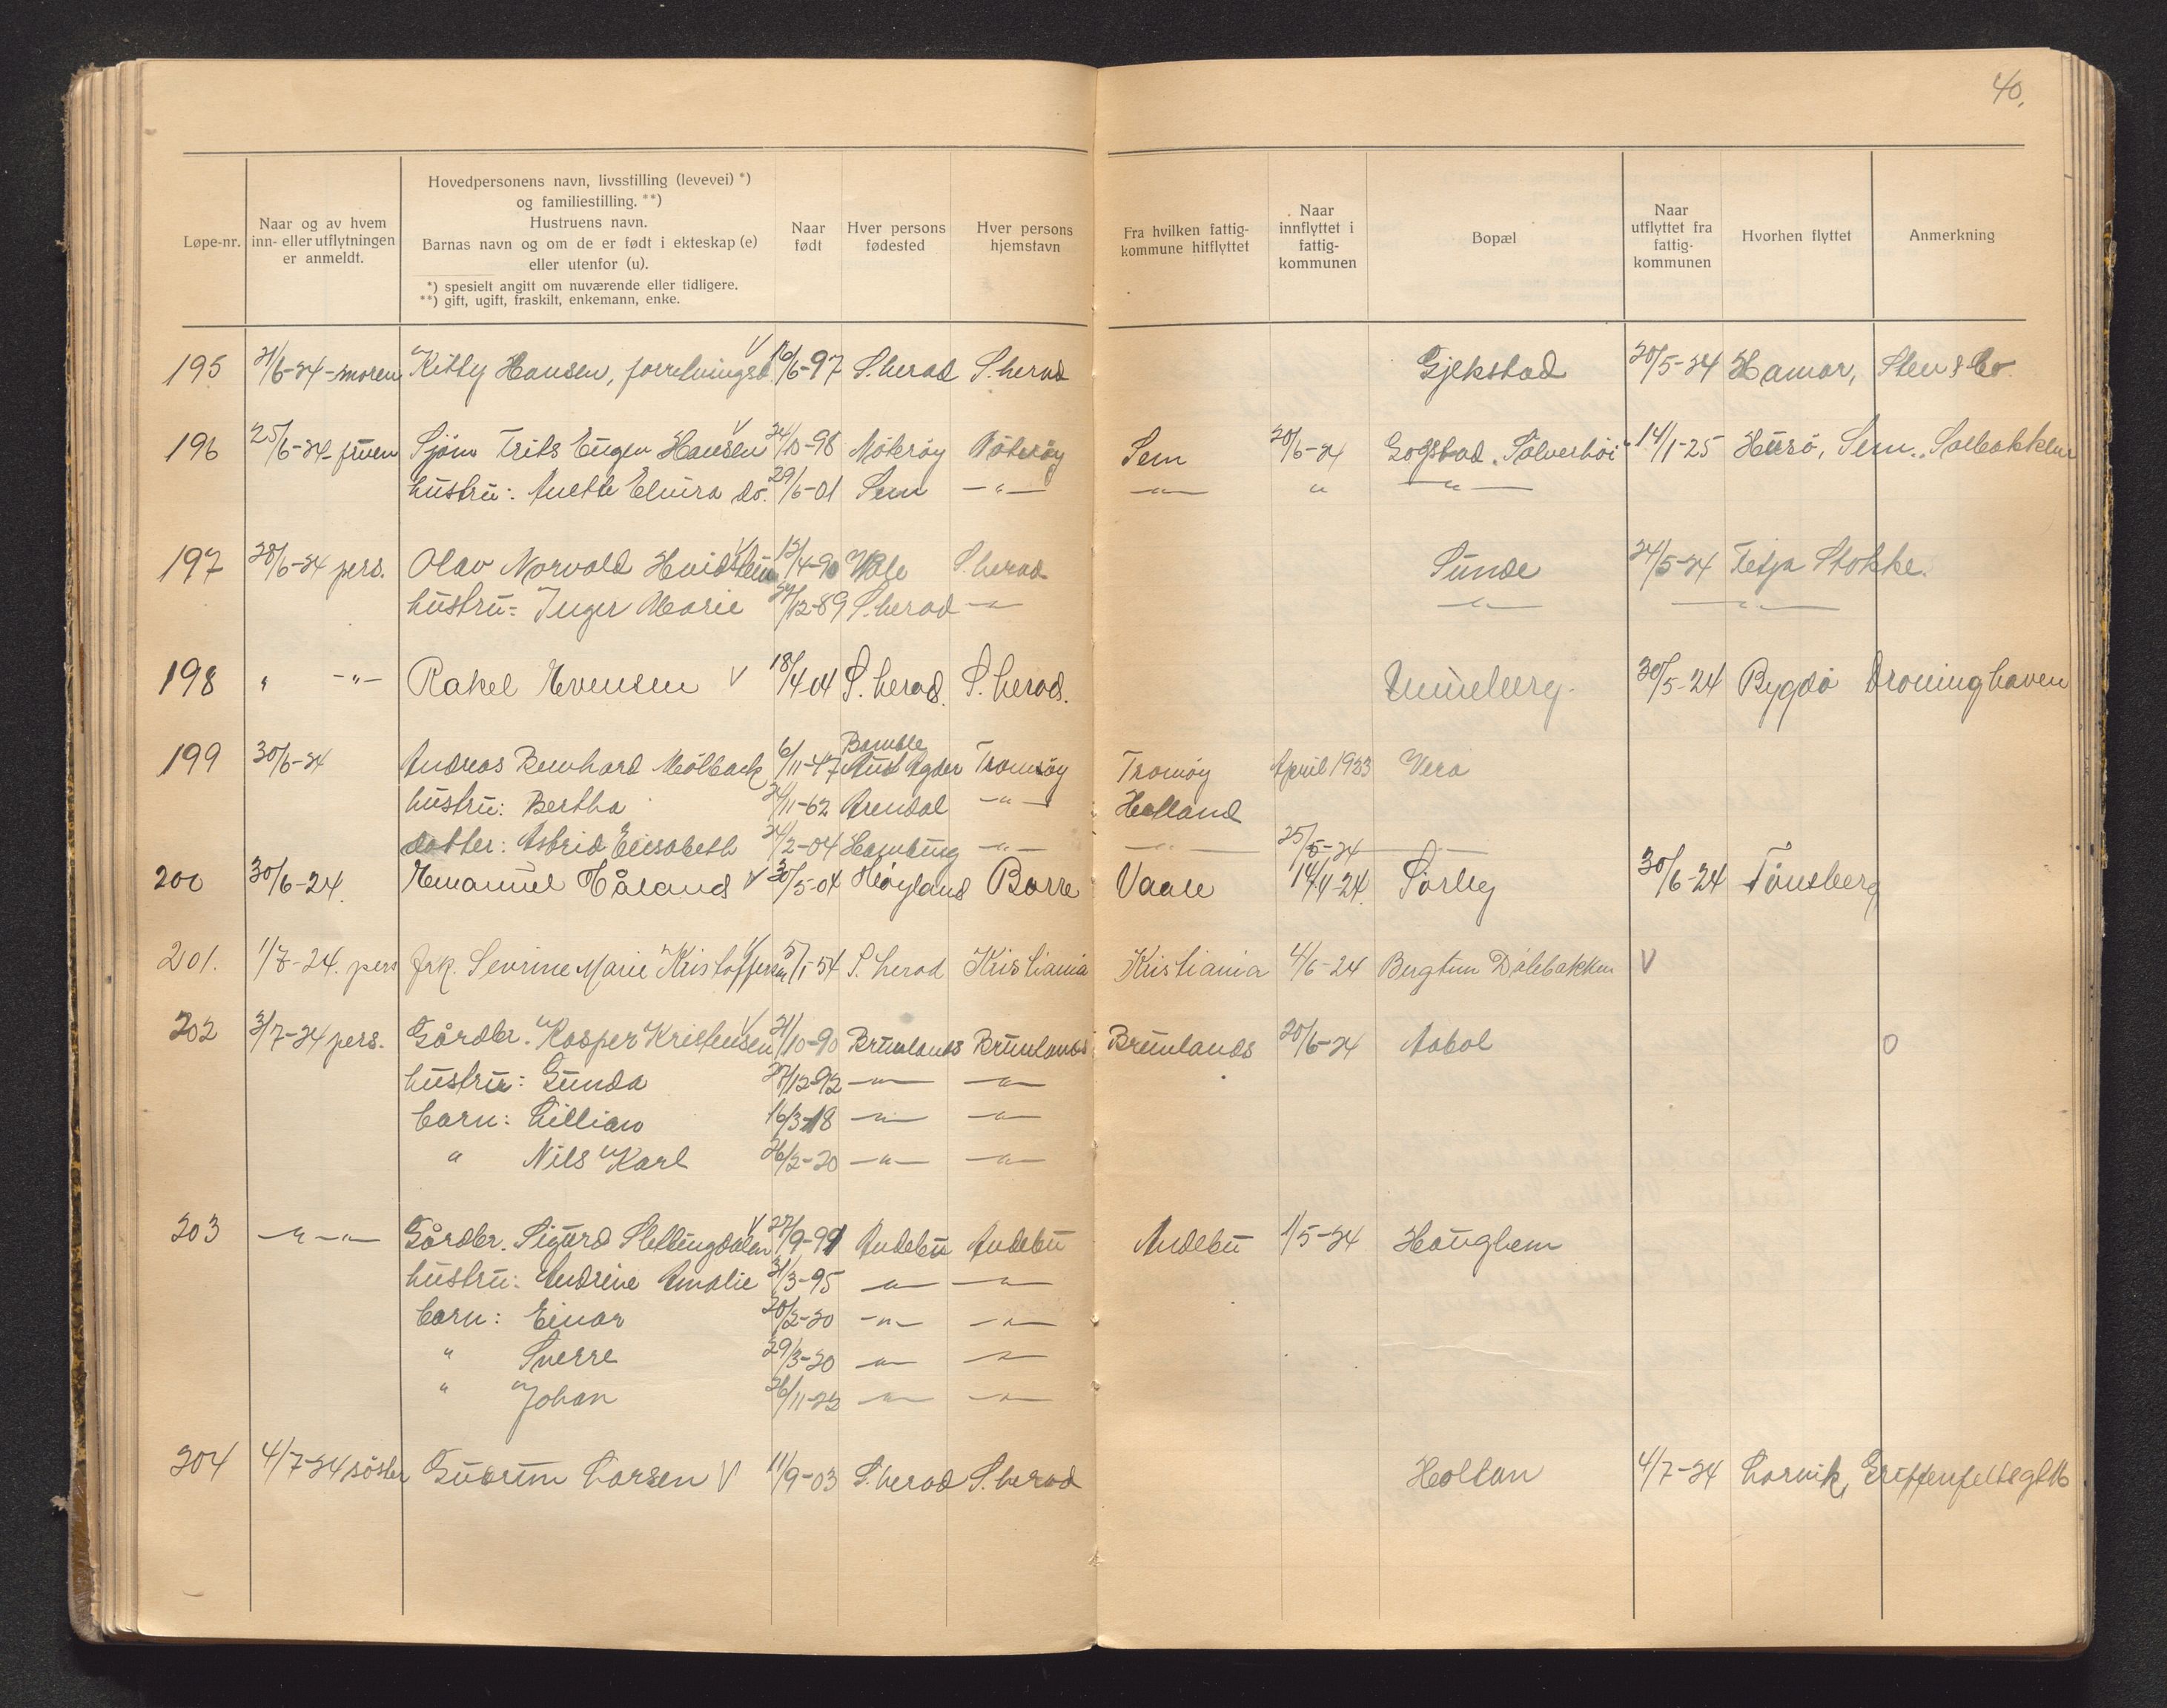 40.
Løpe-nr.
Naar og av hvem inn- eller utflytningen er anmeldt.
Hovedpersonens navn, livsstilling (levevei) *)
og familiestilling. **)
Hustruens navn.
Barnas navn og om de er født i ekteskap (e)
eller utenfor (u).
*) spesielt angitt om nuværende eller tidligere.
**) gift, ugift, fraskilt, enkemann, enke.
Naar født
Hver persons fødested
Hver persons hjemstavn
Fra hvilken fattigkommune hitflyttet
Naar innflyttet i fattigkommunen
Bopæl
Naar utflyttet fra fattigkommunen
Hvorhen flyttet
Anmerkning
195 21/6-24 - moren Kitty Hansen, forretningsd. V 16/6-97 S.herad S.herad Gjekstad 20/5-24 Hamar, Sten & Co.
196 25/6-24 - fruen Sjøm. Frits Eugen Hansen V 24/10-98 Nøterøy Nøterøy Sem 20/6-24 Gogstad "Solverhøi" 14/1-25 Husø, Sem. Solbakken
hustru: Anette Elvira do. 29/6-01 Sem -"- -"- " -"-
197 28/6-24 pers. Olav Norvald Hvidsten V 12/4-90 Våle S.herad Sunde 24/5-24 Fetja Stokke.
hustru: Inger Marie 24/12-89 S.herad -"- -"- -"-
198 " -"- Rakel Evensen V 18/4 04 S.herad. S.herad. Unneberg. 30/5-24 Bygdø Droninghaven
199 30/6-24 Andreas Bernhard Mølback 6/11-47 Bamble Aust Agder Tromøy Tromøy April 1923 Vera
hustru: Bertha 24/11-62 Arendal -"- Holland
datter: Astrid Elisabeth 24/2-04 Hamburg -"- -"- 25/5-24 -"-
200 30/6-24. Emanuel Håland V 30/5-04 Høyland Borre Vaale 14/4-24. Sørby 30/6-24 Tønsberg
201. 1/7-24. pers frk. Sevrine Marie Kristoffersen V 5/1-54 S.herad Kristiania Kristiania 4/6-24 Bergtun Dølebakken V
202 3/7-24 pers. Gårdbr. Kasper Kristensen V 21/10-90 Brunlanes Brunlanes Brunlanes 20/6-24 Aabol O
hustru: Gunda 27/12-92 -"- -"-
barn: Lillian 16/3-18 -"- -"-
" Nils Karl 26/2-20 -"- -"-
203 -"-"- Gårdbr. Sigurd Slettingdalen V 27/9-91 Andebu Andebu Andebu 1/5-24 Haughem
hustru: Andrine Amalie 31/3-95 -"- -"-
barn: Einar 20/2-20 -"- -"-
" Sverre 29/3-20 -"- -"-
" Johan 26/11-22 -"- -"-
204 4/7-24 søster Gudrun Larsen V 11/9-03 S.herad S.herad Holtan 4/7-24 Larvik, Griffenfeltsgt 16